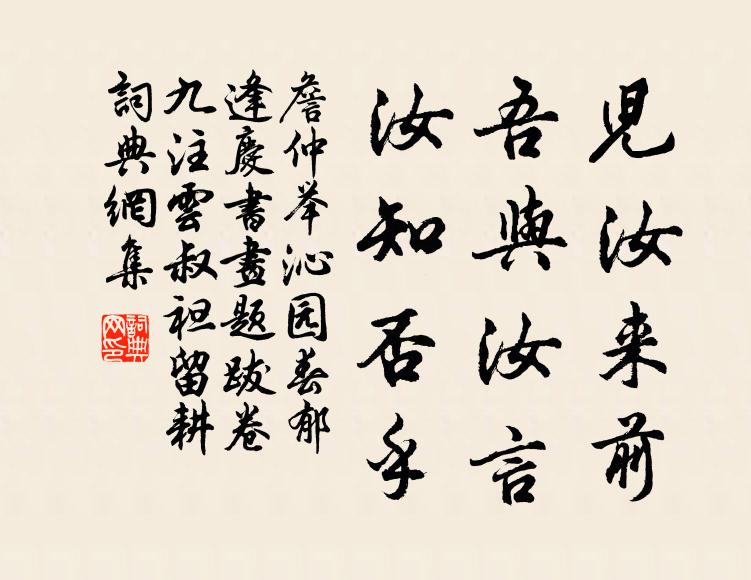 児汝来前
吾與汝言
汝知否乎
詹仲举沁园春郁
逢慶書畫題跋卷
九注雲叔祖留耕
詞典網集
詞典
网印